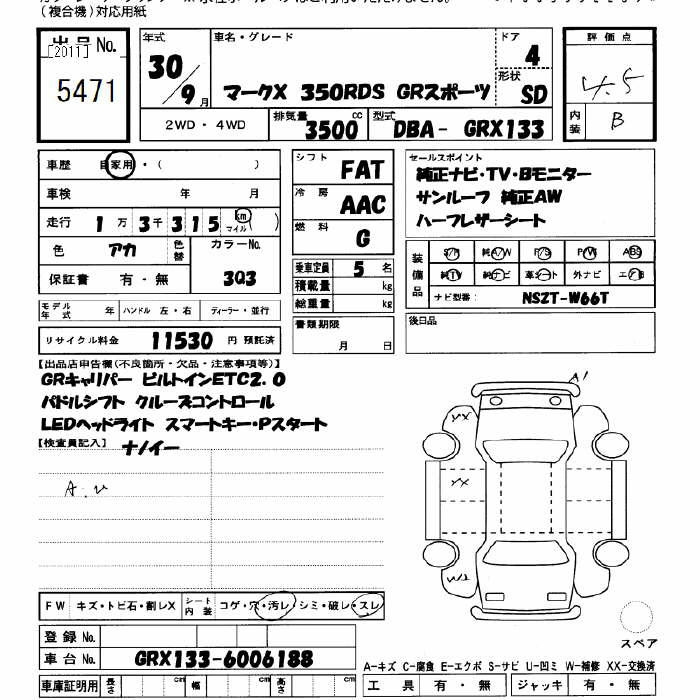 (複合機)対応用紙
出品 No.
[2011]
5471
年式
30/9月
車名・グレード
マークX 350RDS GRスポーツ
ドア
4
形状
SD
評価点
4.5
内装
B
2WD・4WD
排気量
3500 cc
型式
DBA- GRX133
車歴 自家用・( )
車検 年 月
走行 1万3千315 km マイル( )
色 アカ 色替
カラーNo.
3Q3
保証書 有・無
モデル年式 年 ハンドル 左・右 ディーラー・並行
リサイクル料金 11530 円 預託済
シフト FAT
冷房 AAC
燃料 G
乗車定員 5 名
積載量 kg
総重量 kg
書類期限
月 日
セールスポイント
純正ナビ・TV・Bモニター
サンルーフ 純正AW
ハーフレザーシート
装備品
S/R 純A/W P/S P/W ABS
純TV 純ナビ 革シート 外ナビ エアB
ナビ型番: NSZT-W66T
後日品
【出品店申告欄(不良箇所・欠品・注意事項等)】
GRキャリパー ビルトインETC2.0
パドルシフト クルーズコントロール
LEDヘッドライト スマートキー・Pスタート
ナノイー
【検査員記入】
A.U
A1
XX
XX
W2
FW キズ・トビ石・割レX シート内装 コゲ・穴・汚レ・シミ・破レ・スレ
スペア
登録 No.
車台 No. GRX133-6006188
車庫証明用 長さ cm 幅 cm 高さ cm
A-キズ C-腐食 E-エクボ S-サビ U-凹ミ W-補修 XX-交換済
工具 有・無 ジャッキ 有・無